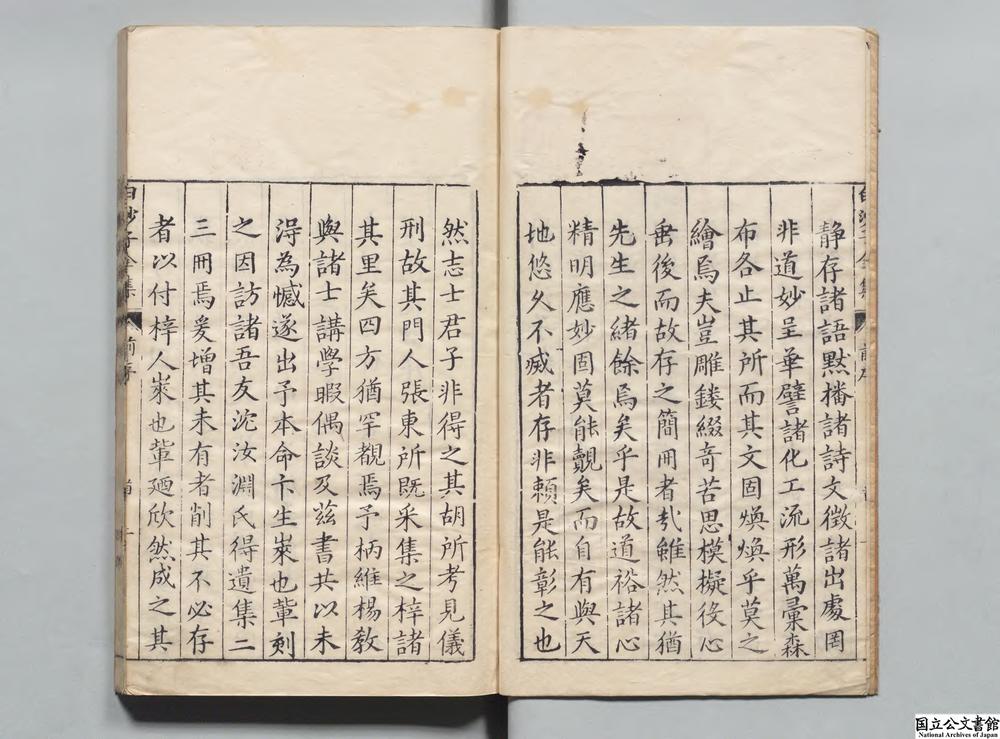 靜存諸語黙播諸詩文徵諸出處罔
非道妙呈華譬諸化工流形萬彚森
布各止其所而其文固煥煥乎莫之
繪焉夫豈雕鏤綴竒苦思模擬役心
垂後而故存之簡冊者㢤雖然其猶
先生之緒餘焉矣乎是故道裕諸心
精明應妙固莫能觀矣而自有與天
地悠久不㓕者存非頼是能彰之也
然志士君子非得之其胡所考見儀
刑故其門人張東所既采集之梓諸
其里矣四方猶罕覩焉予柄維楊敎
與諸士講學暇偶談及兹書共以未
淂為憾遂出予本命卞生崶也軰刻
之因訪諸吾友沱汝淵氏得遺集二
三冊焉爰增其未有者削其不必存
者以付梓人崶也軰廼欣然成之其
白沙子全集 前序
国立公文書館
National Archives of Japan